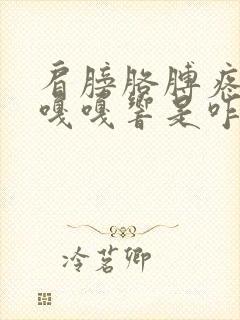 肩膀胳膊疼
嘎嘎响是咋
冷茗卿